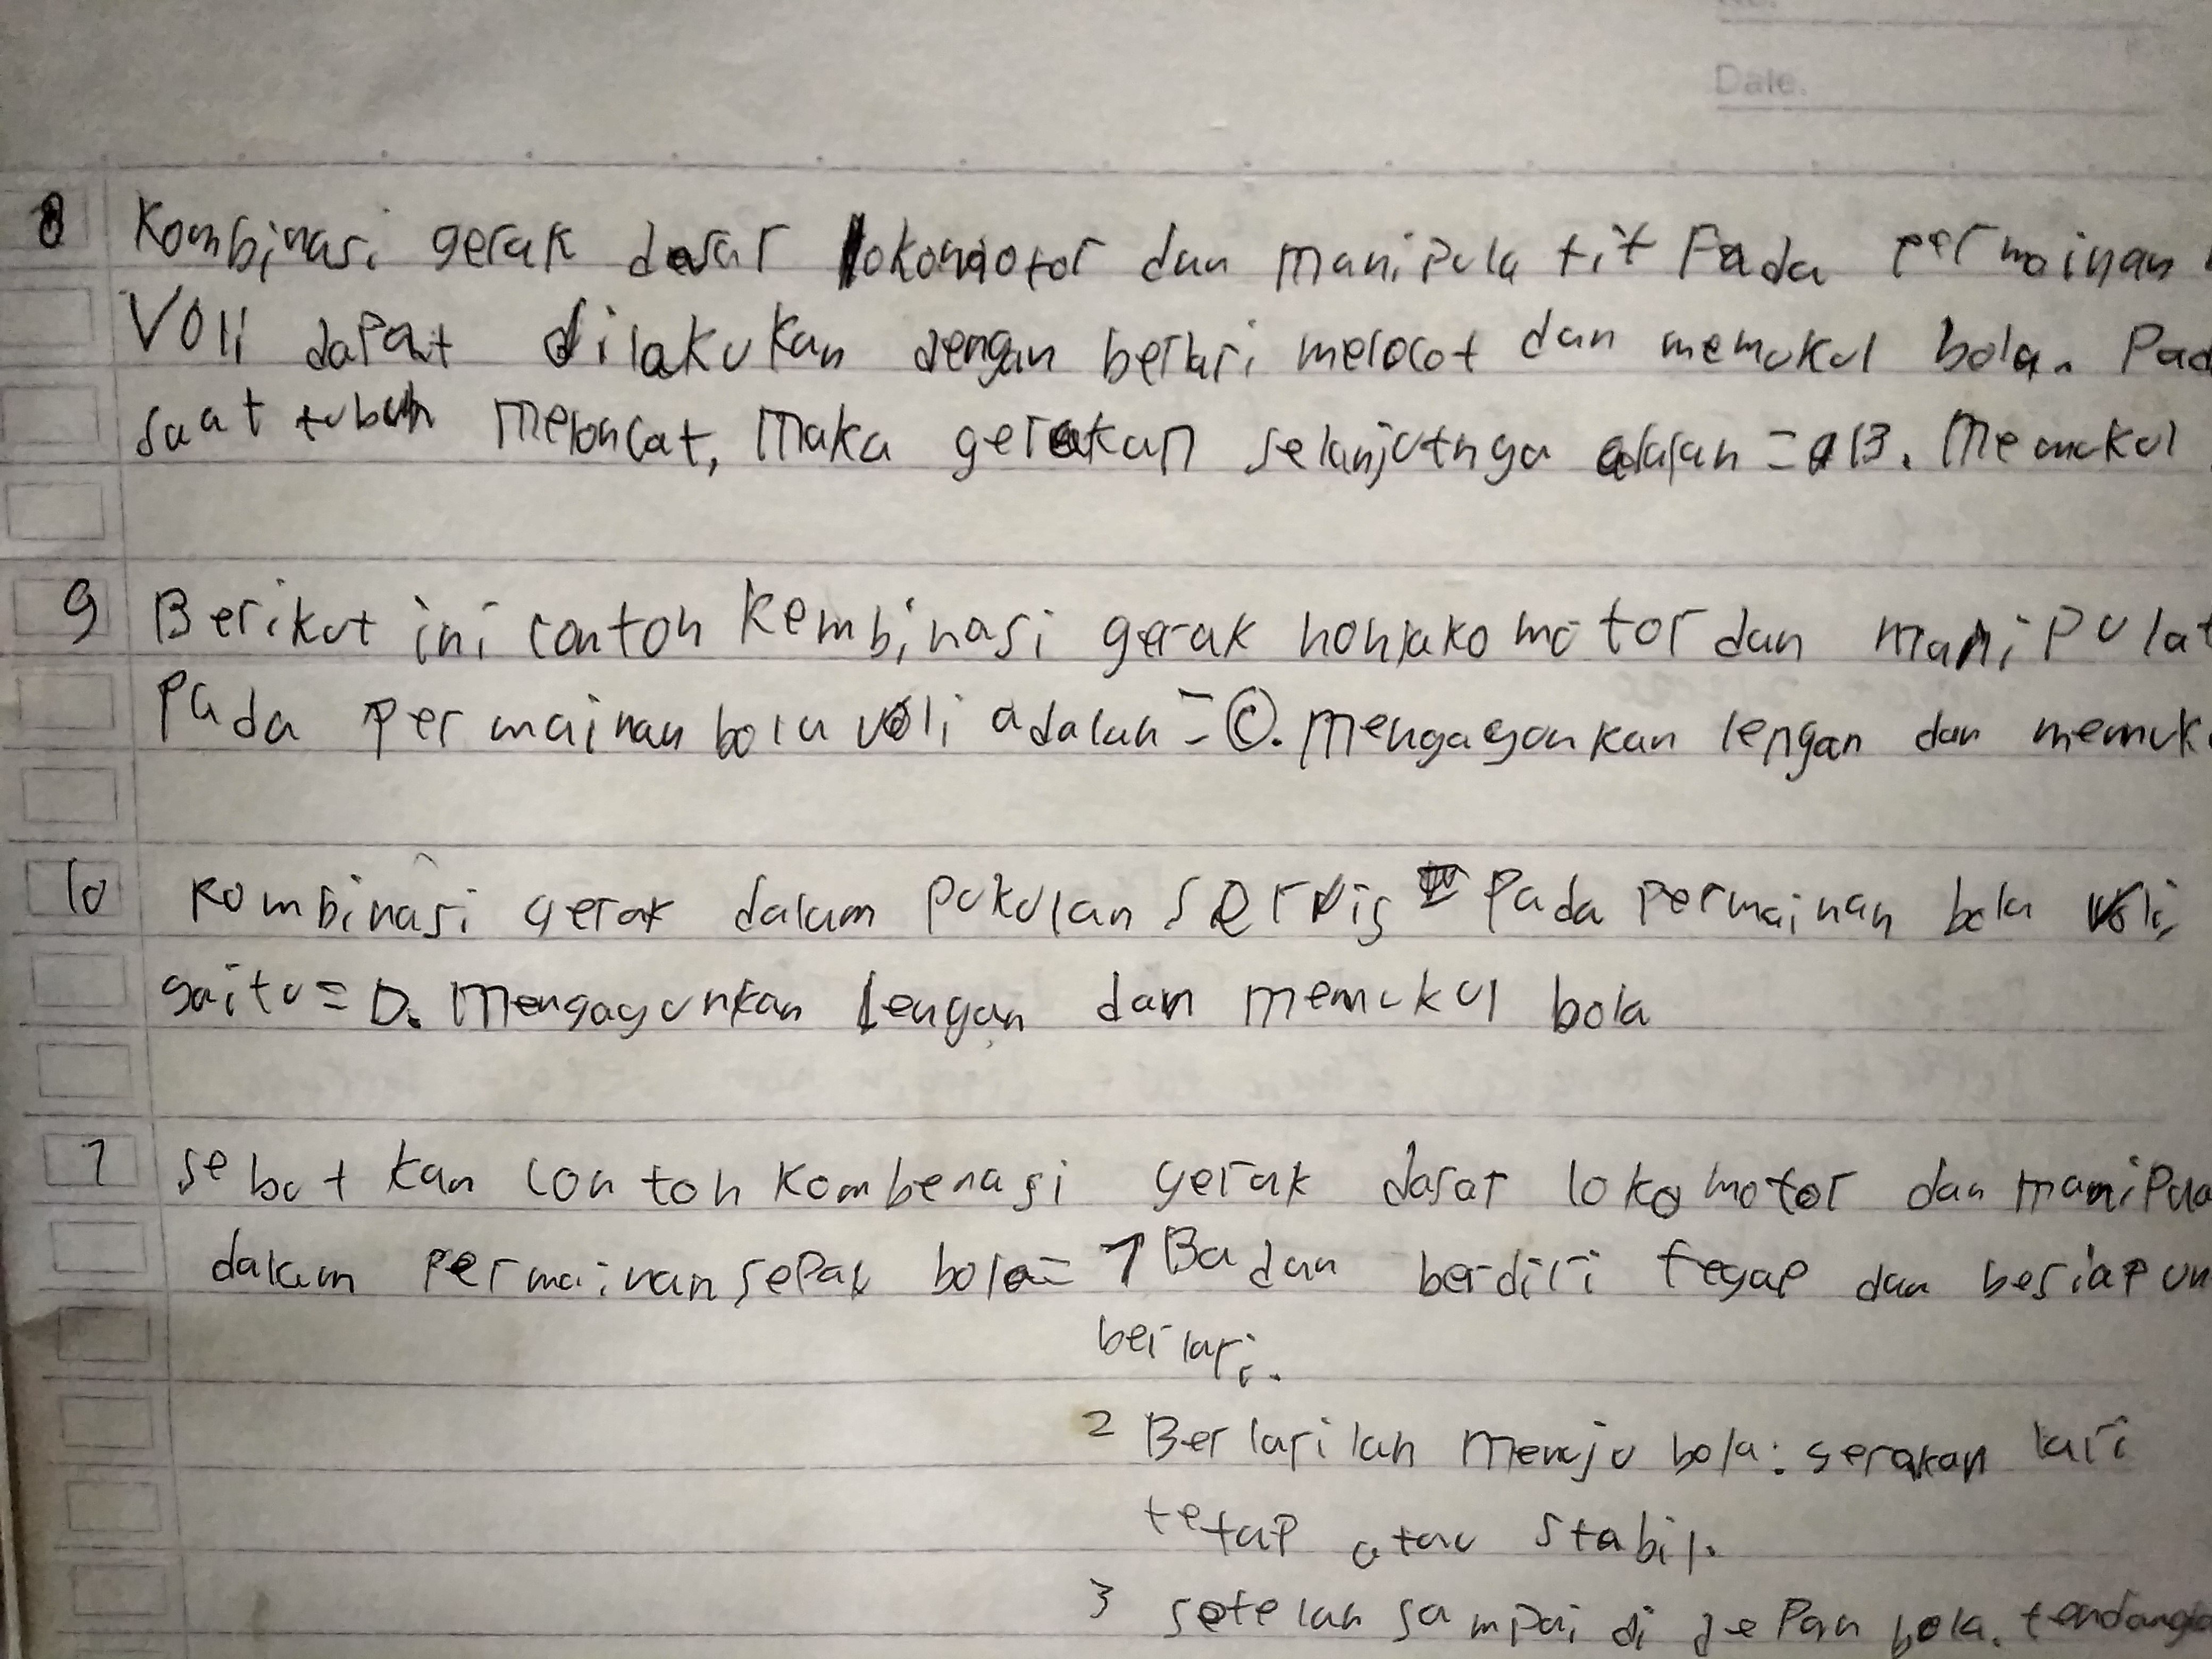 No.
Date.
8 Kombinasi gerak dasar lokomotor dan manipulatif Pada permainan
Voli dapat dilakukan dengan berlari melocot dan memukul bola. Pad
saat tubuh meloncat, Maka gerakan selanjutnya adalah = B. Memukul
9 Berikut ini contoh Kembinasi gerak nonlokomotor dan manipulat
Pada Permainan bola voli adalah = C. Mengayonkan lengan dan memuk
10 Kombinasi gerak dalam pukulan servis Pada Permainan bola voli,
yaitu = D. Mengayunkan lengan dan memukul bola
1 sebutkan contoh Kombenasi gerak dasar lokomotor dan manipula
dalam Permainan sepak bola = 1 Badan berdiri tegap dan besiap un
berlari.
2 Berlarilah menuju bola: gerakan lari
tetap atau stabil.
3 setelah sampai di depan bola. tendangla